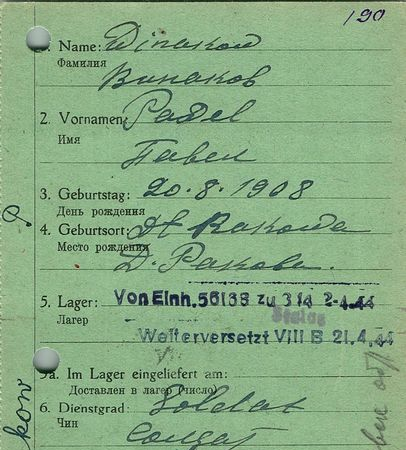 190
Name:
Фамилия
Винаков
2. Vornamen: Pavel
Имя
Павел
3. Geburtstag: 20.8.1908
День рождения
4. Geburtsort:
Место рождения
Д. Ракова.
5. Lager: Von Einh. 56138 zu 314 2-4.44
Лагер
Stalag
Weiterversetzt VIII B 21.4.44
9a. Im Lager eingeliefert am:
Доставлен в лагер (число)
6. Dienstgrad: Soldat
Чин
Солдат
kow